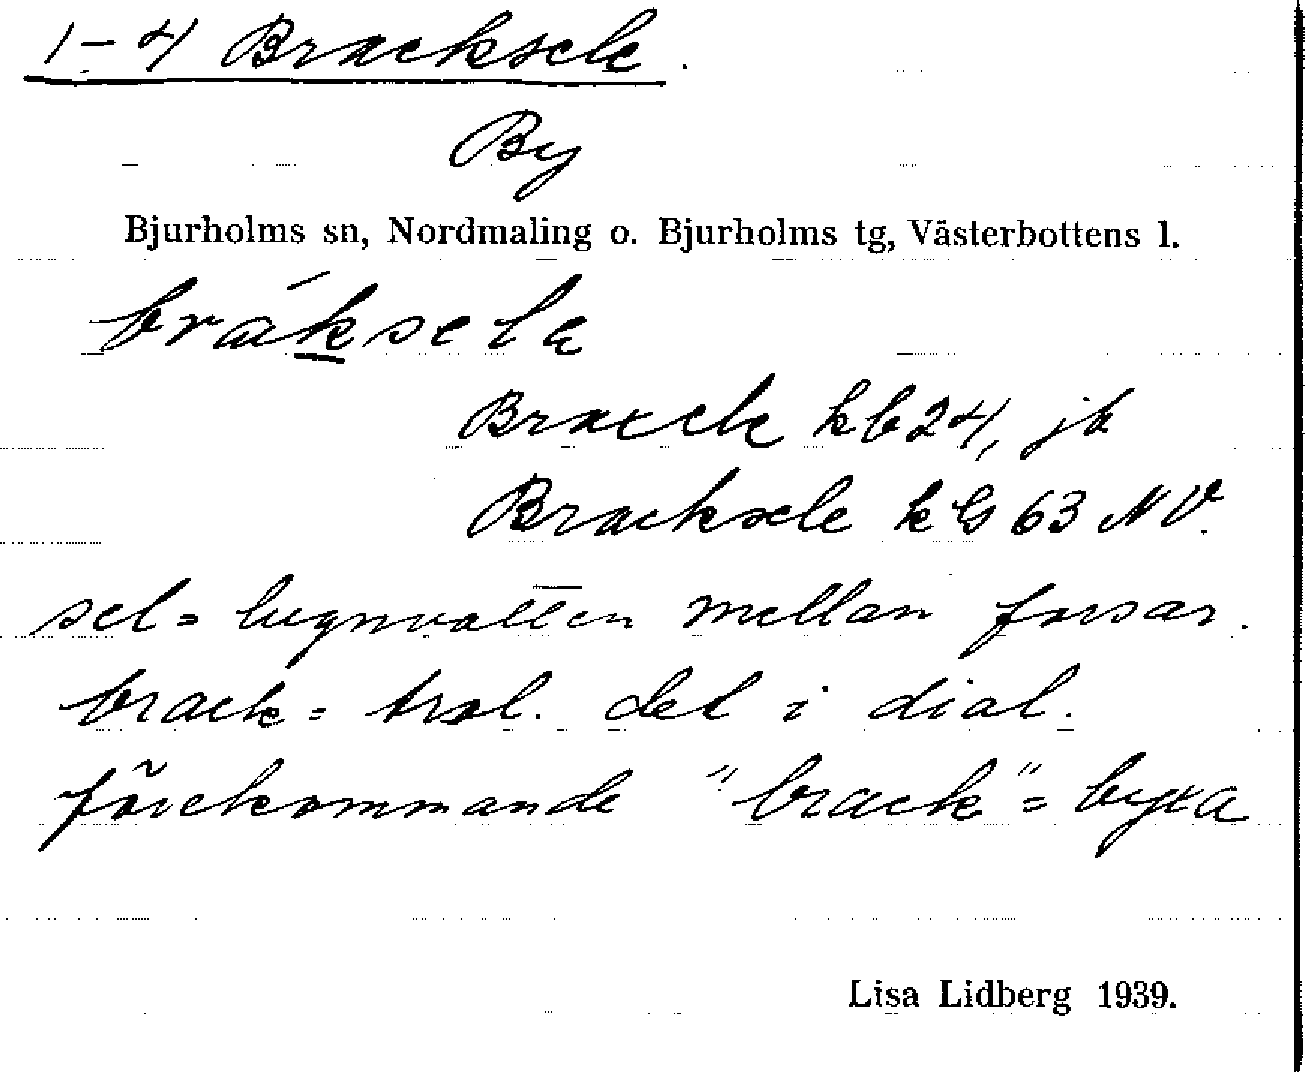 1-4 Bracksele.
By
Bjurholms sn, Nordmaling o. Bjurholms tg, Västerbottens l.
bráksela
Bracele kb 24, jb
Bracksele kG 63 NV.
sel = lugnvatten mellan forsar.
brack = trol. det i dial.
förekommande "brack" = byxa
Lisa Lidberg 1939.